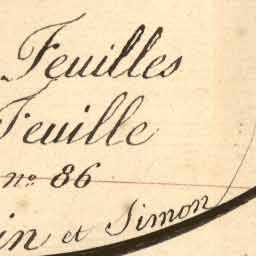 Feuilles
Feuille
nº 86
in et Simon